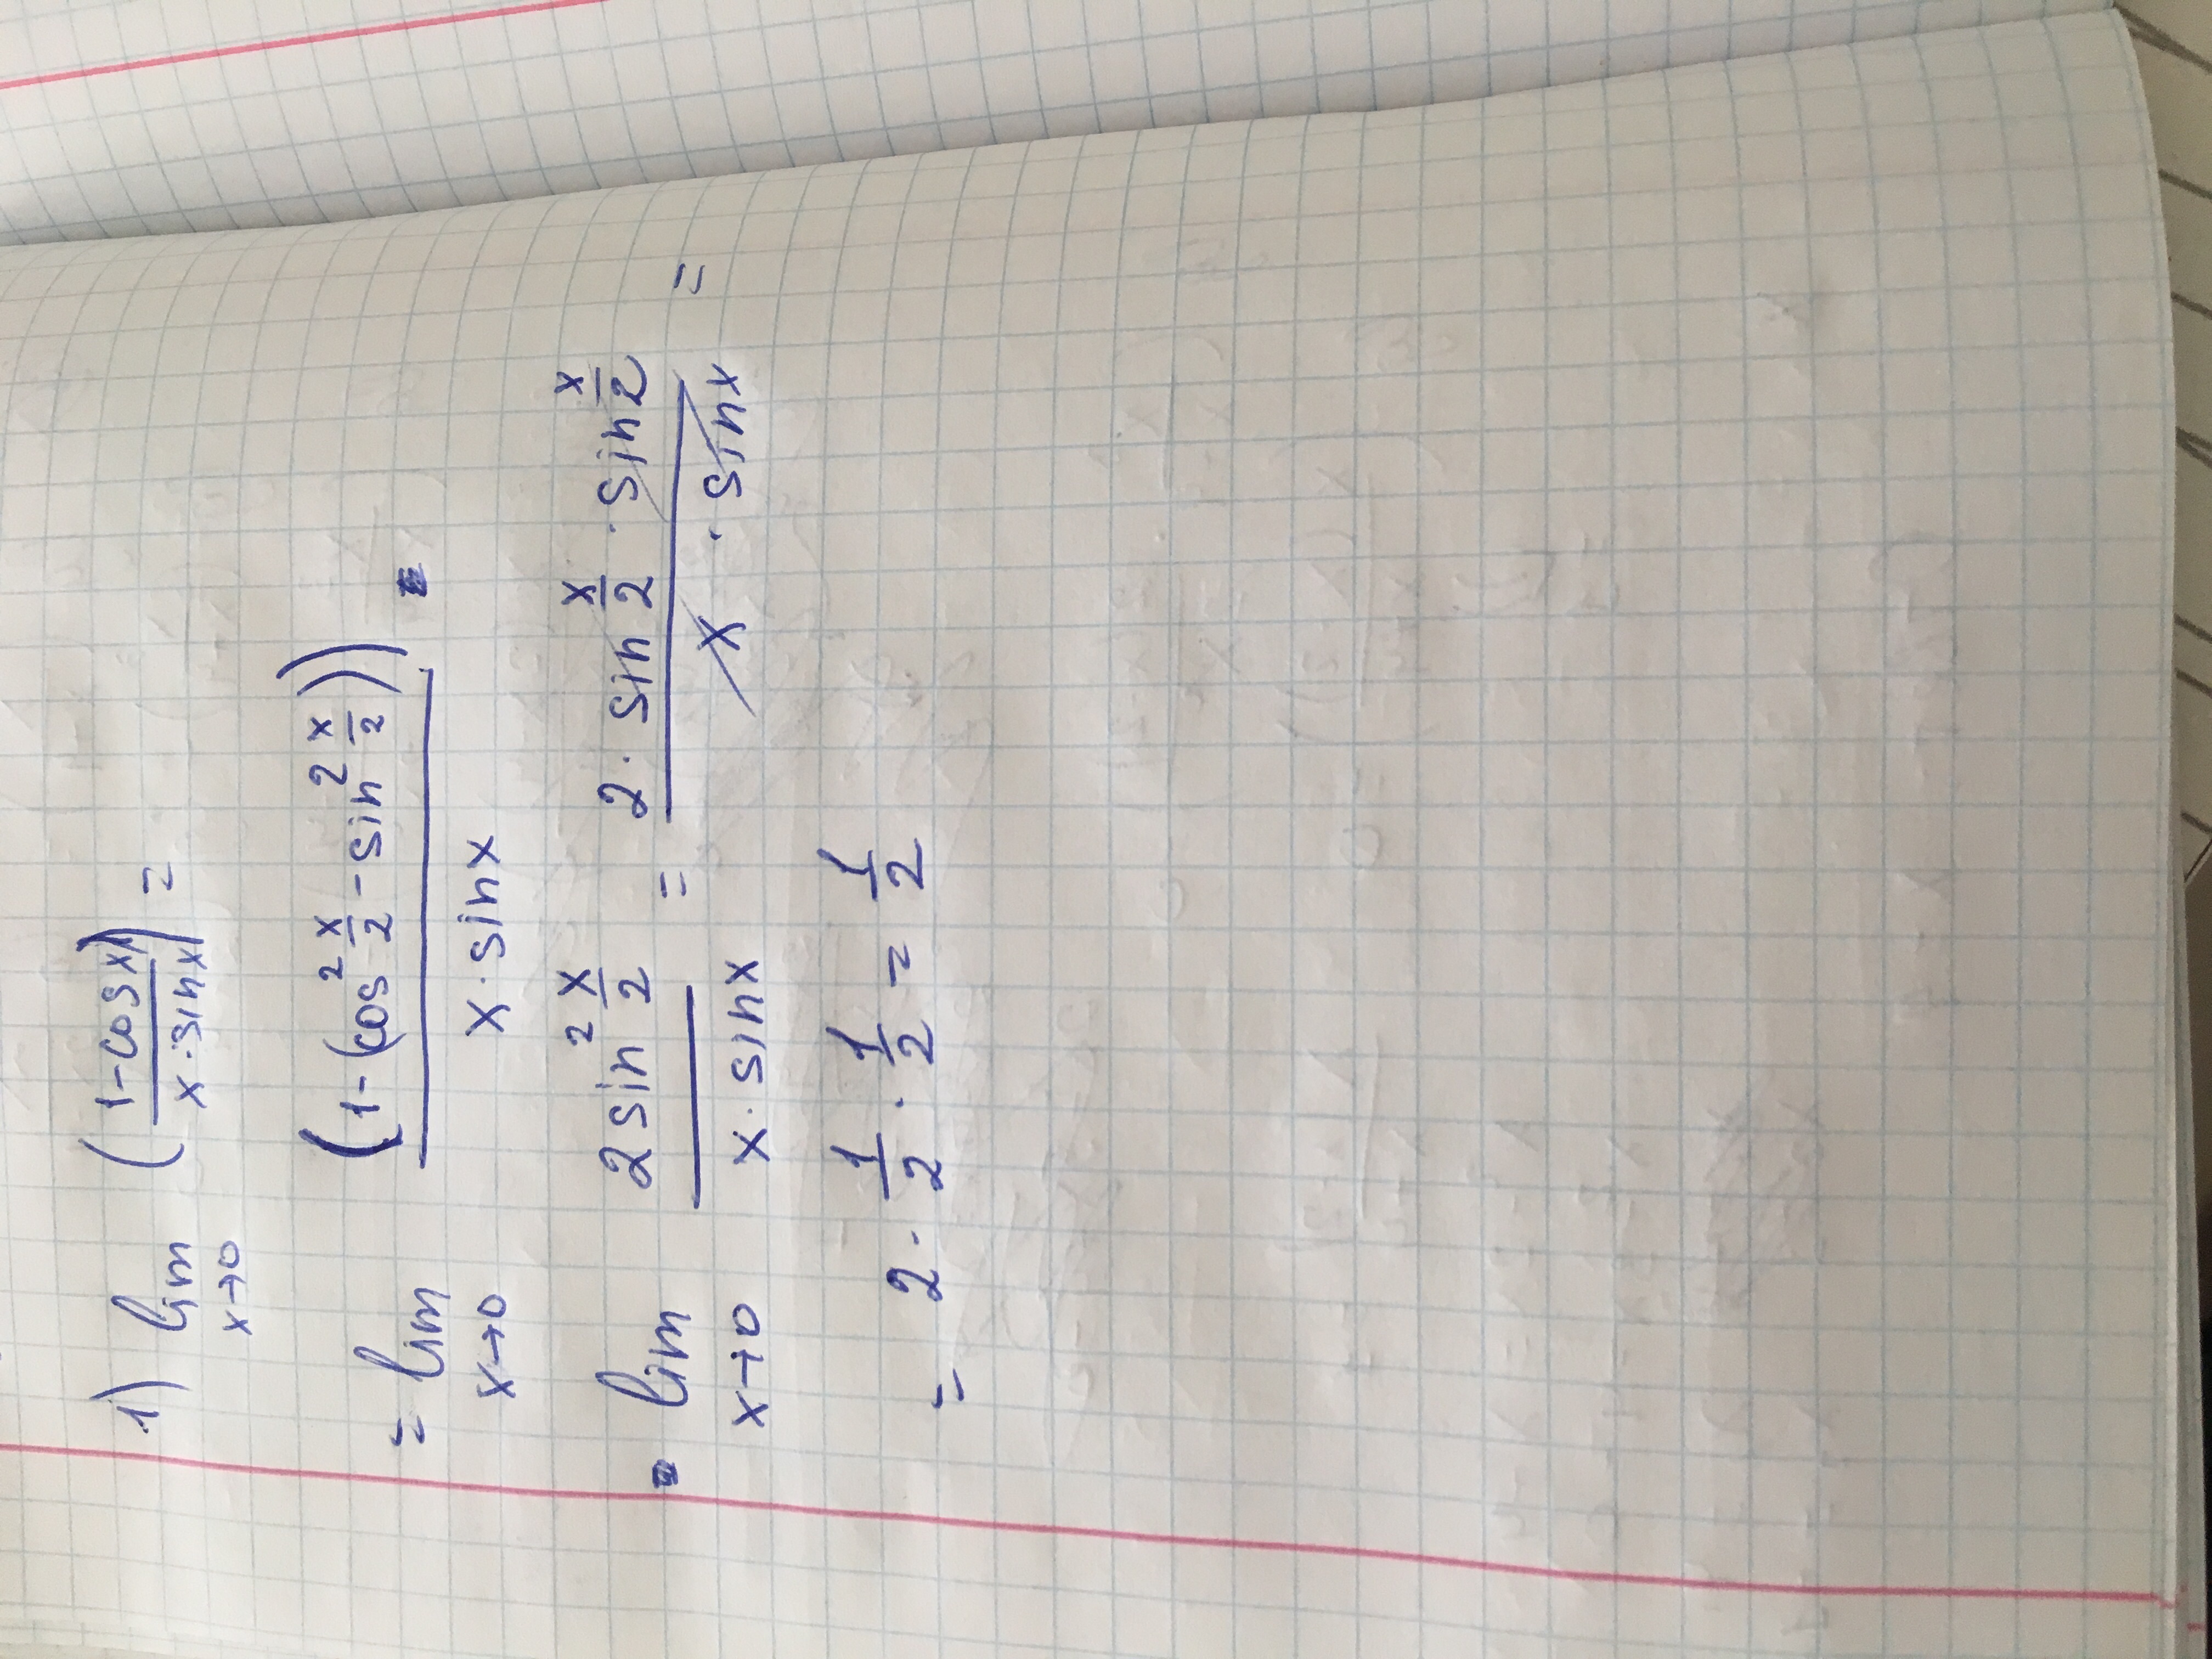 1) lim x→0 ((1-cos x)/(x·sin x)) =
= lim x→0 (1-(cos² x/2 - sin² x/2))/(x·sin x) =
= lim x→0 (2 sin² x/2)/(x·sin x) = (2·sin x/2 · sin x/2)/(x · sin x) =
= 2 · 1/2 · 1/2 = 1/2